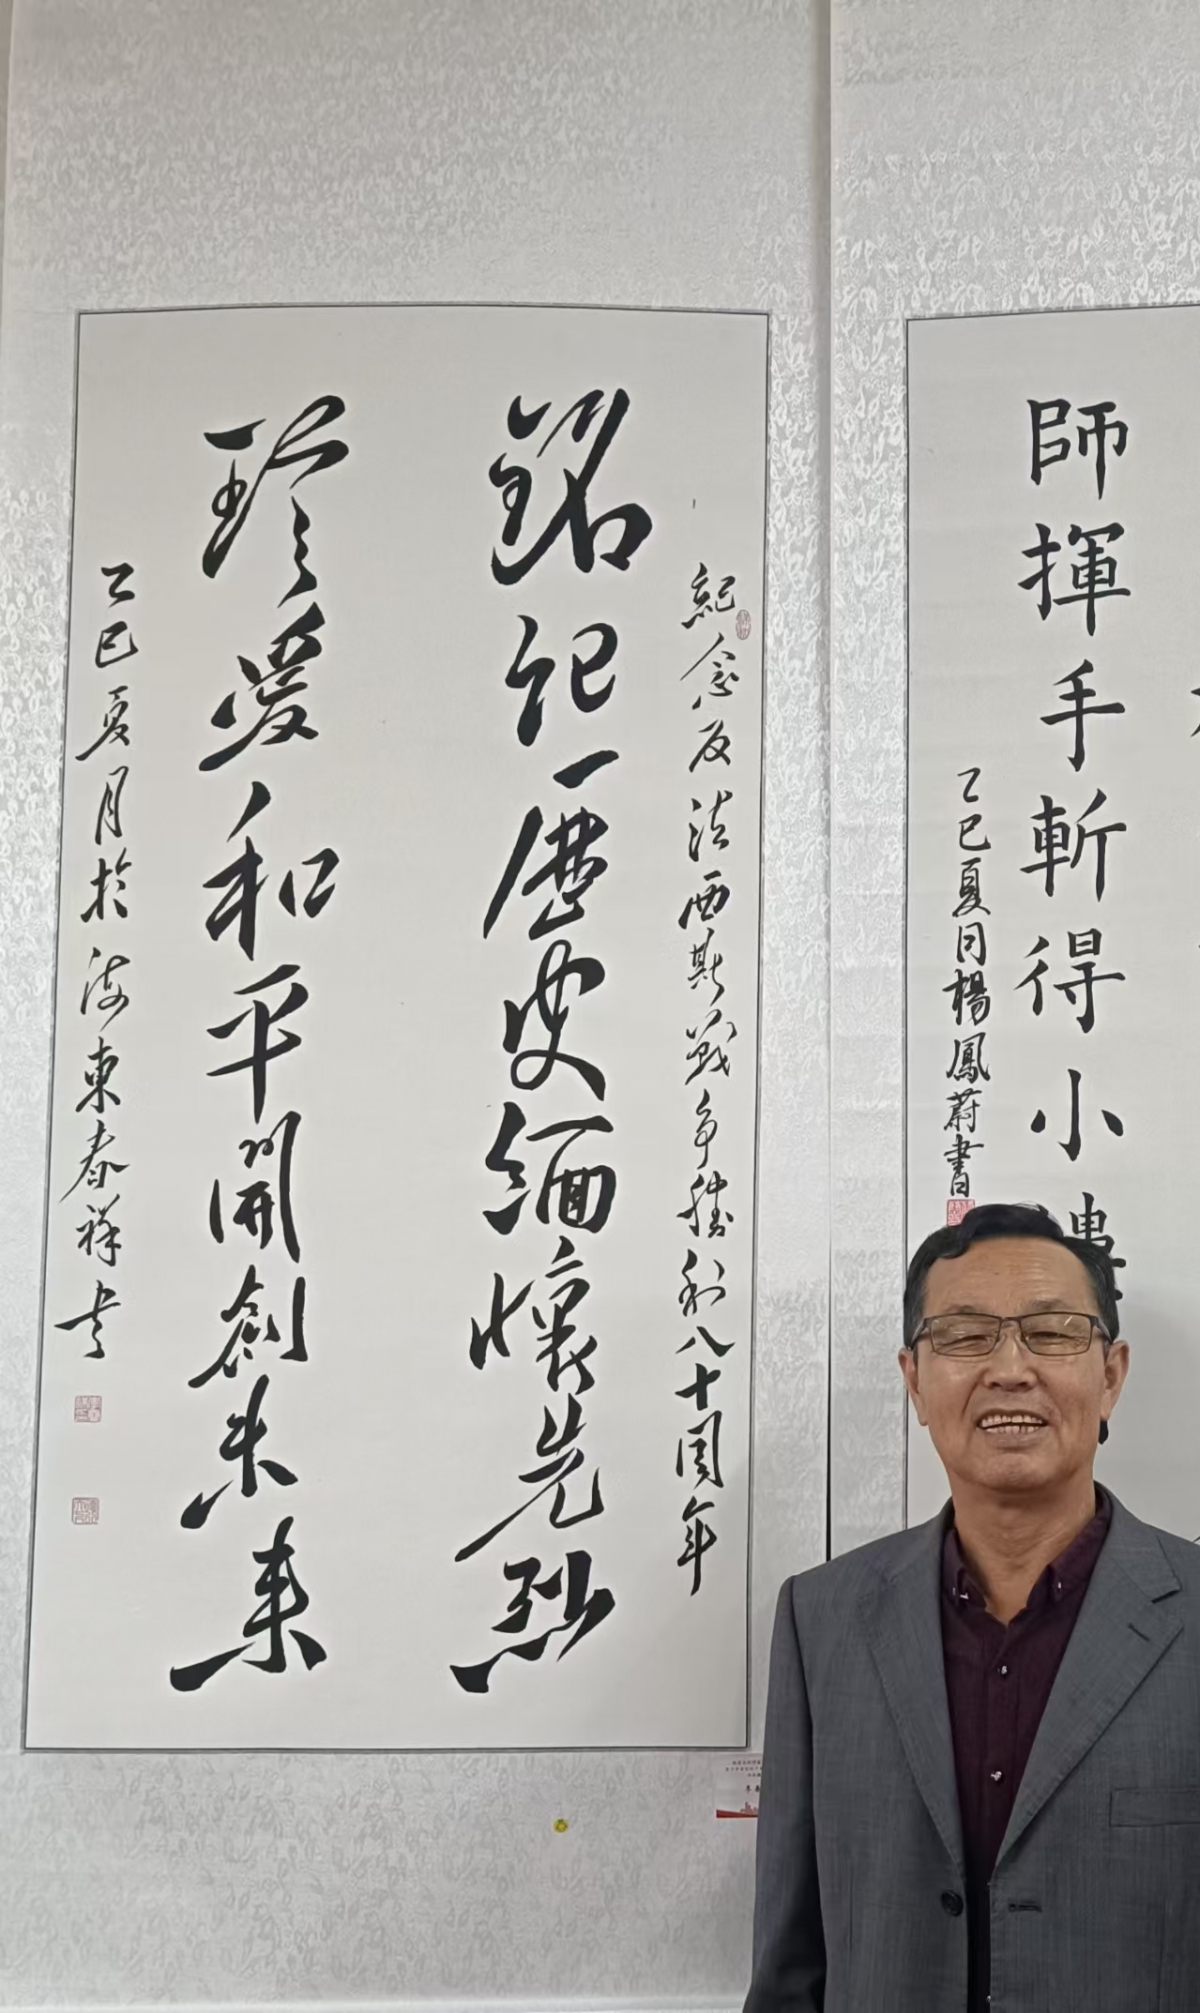 紀念反法西斯戰争勝利八十周年
銘記歷史緬懷先烈
珍愛和平開創未来
乙巳夏月於海東春祥书
師揮手斬得小樓
乙巳夏月楊鳳蔚書